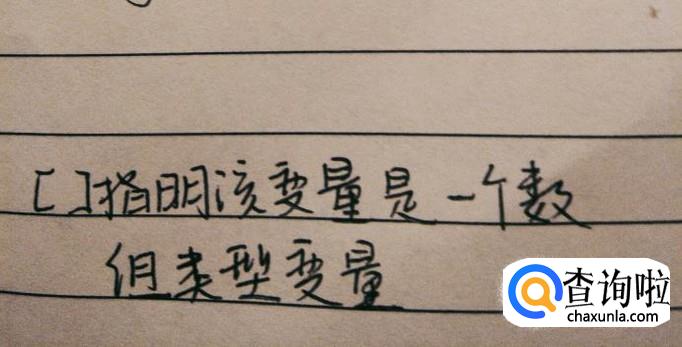 [ ]指明该变量是一个数
组类型变量
查询啦
chaxunla.com